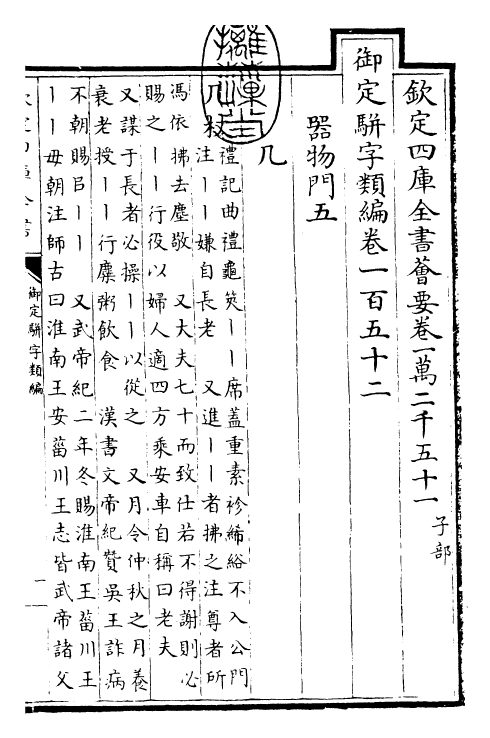 欽定四庫全書薈要卷一萬二千五十一 子部
御定駢字類編卷一百五十二
器物門五
几
几杖 禮記曲禮龜筴丨丨席蓋重素袗絺綌不入公門
注丨丨嫌自長老 又進丨丨者拂之注尊者所
馮依拂去塵敬 又大夫七十而致仕若不得謝則必
賜之丨丨行役以婦人適四方乘安車自稱曰老夫
又謀于長者必操丨丨以從之 又月令仲秋之月養
衰老授丨丨行糜粥飲食 漢書文帝紀贊吳王詐病
不朝賜㠯丨丨 又武帝紀二年冬賜淮南王菑川王
丨丨毋朝注師古曰淮南王安菑川王志皆武帝諸父
御定駢字類編
一